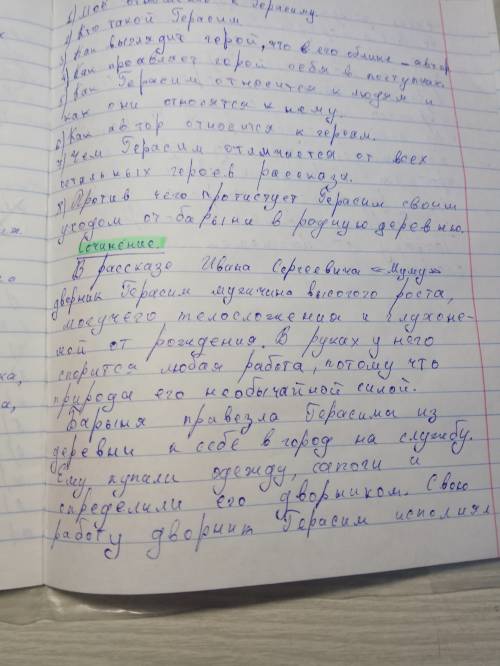 6) Моё отношение к Герасиму.
1) Кто такой Герасим
2) Как выглядит герой, что в его облике автор
3) Как проявляет герой себя в поступках
5) Как Герасим относится к людям и
как они относятся к нему.
6) Как автор относится к героям.
7) Чем Герасим отличается от всех
остальных героев рассказа.
8) Против чего протестует Герасим своим
уходом от барыни в родную деревню.
Сочинение.
В рассказе Ивана Сергеевича «Муму»
дворник Герасим мужчина высокого роста,
могучего телосложения и глухоне-
мой от рождения. В руках у него
спорится любая работа, потому что
природа его необычайной силой.
Барыня привезла Герасима из
деревни к себе в город на службу.
Ему купали одежду, сапоги и
определили его дворником. Свою
работу дворник Герасим исполнял